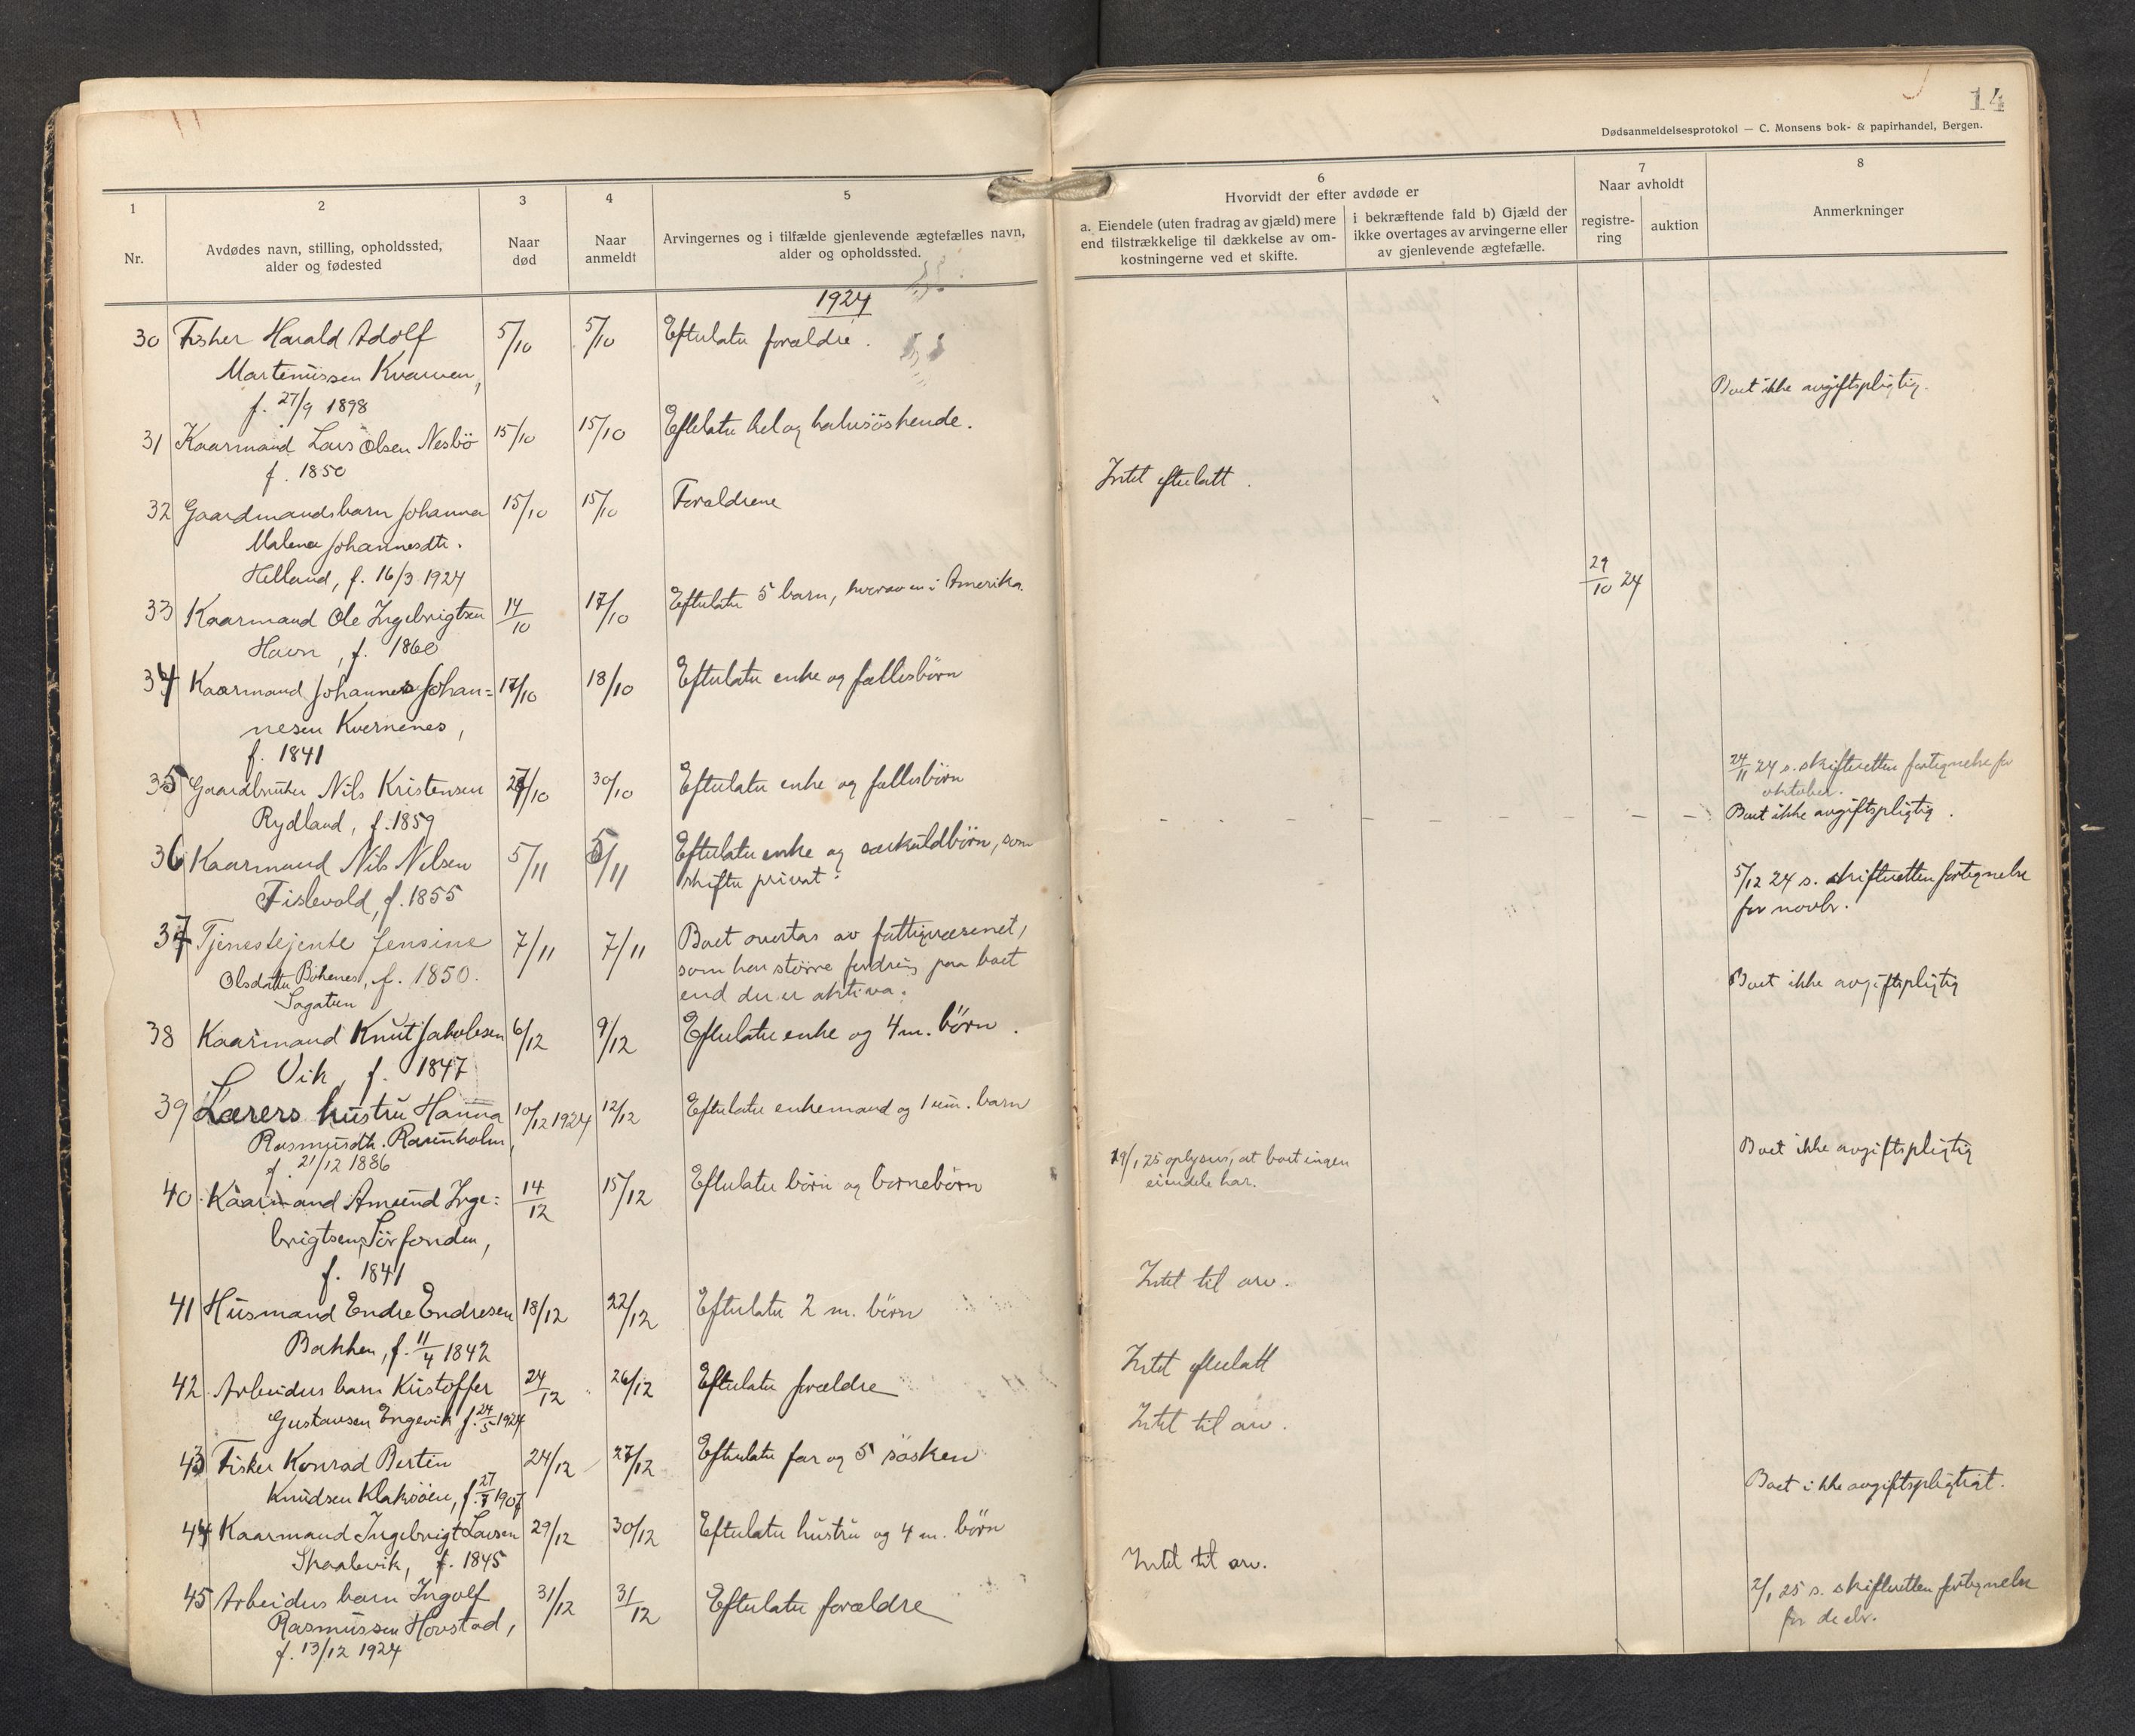 14
Dødsanmeldelsesprotokol — C. Monsens bok- & papirhandel, Bergen.
1
Nr.
2
Avdødes navn, stilling, opholdssted,
alder og fødested
3
Naar
død
4
Naar
anmeldt
5
Arvingernes og i tilfælde gjenlevende ægtefælles navn,
alder og opholdssted.
6
Hvorvidt der efter avdøde er
a. Eiendele (uten fradrag av gjæld) mere
end tilstrækkelige til dækkelse av om-
kostningerne ved et skifte.
i bekræftende fald b) Gjæld der
ikke overtages av arvingerne eller
av gjenlevende ægtefælle.
7
Naar avholdt
registre-
ring
auktion
8
Anmerkninger
1924
30 Fisker Harald Adolf 5/10 5/10 Efterlater forældre.
Martenussen Kvarven,
f. 27/9 1898
Boet ikke avgiftspligtig.
31 Kaarmand Lars Olsen Nesbö 15/10 15/10 Efterlater hel og halvsöskende.
f. 1850
Intet efterlatt.
32 Gaardmandsbarn Johanna 15/10 15/10 Forældrene
Malena Johannesdtr.
Helland, f. 16/3 1924
29/10 24
33 Kaarmand Ole Ingebrigtsen 14/10 17/10 Efterlater 5 barn, hvorav en i Amerika.
Havn, f. 1860
34 Kaarmand Johannes Johan= 17/10 18/10 Efterlater enke og fællesbörn
nesen Kvernenes,
f. 1841
24/11 24 s. skifteretten fortegnelse for
oktober.
35 Gaardbruker Nils Kristensen 27/10 30/10 Efterlater enke og fællesbörn
Rydland, f. 1859
Boet ikke avgiftspligtig.
36 Kaarmand Nils Nilsen 5/11 5/11 Efterlater enke og særkuldbörn, som
Fislevold, f. 1855 skifter privat.
5/12 24 s. skifteretten fortegnelse
for novbr.
37 Tjenestejente Jensine 7/11 7/11 Boet overtas av fattigvæsenet,
Olsdatter Bökenes, f. 1850. som har större fordring paa boet
Sagatun end der er aktiva.
Boet ikke avgiftspligtig
38 Kaarmand Knut Jakobsen 6/12 9/12 Efterlater enke og 4 m. börn.
Vik, f. 1847
39 Lærers hustru Hanna 10/12 1924 12/12 Efterlater enkemand og 1 um. barn
Rasmusdtr. Ravnholm,
f. 21/12 1886
Boet ikke avgiftspligtig
19/1 25 oplyses, at boet ingen
eiendele har.
40. Kaarmand Amund Inge= 14/12 15/12 Efterlater börn og barnebörn
brigtsen Sörfonden,
f. 1841
Intet til arv.
41 Husmand Endre Endresen 18/12 22/12 Efterlater 2 m. börn
Bakken, f. 11/4 1842
Intet efterlatt
42. Arbeiders barn Kristoffer 24/12 26/12 Efterlater forældre
Gustavsen Engevik f. 24/5 1924
Intet til arv.
43 Fisker Konrad Bertin 24/12 27/12 Efterlater far og 5 sösken
Knudsen Klaksöien, f. 27/7 1907
Boet ikke avgiftspligtigt.
44 Kaarmand Ingebrigt Larsen 29/12 30/12 Efterlater hustru og 4 m. börn
Skaalevik, f. 1845
Intet til arv.
45 Arbeiders barn Ingolf 31/12 31/12 Efterlater forældre
Rasmussen Hovstad,
f. 13/12 1924
2/1 25 s. skifteretten fortegnelse
for decbr.